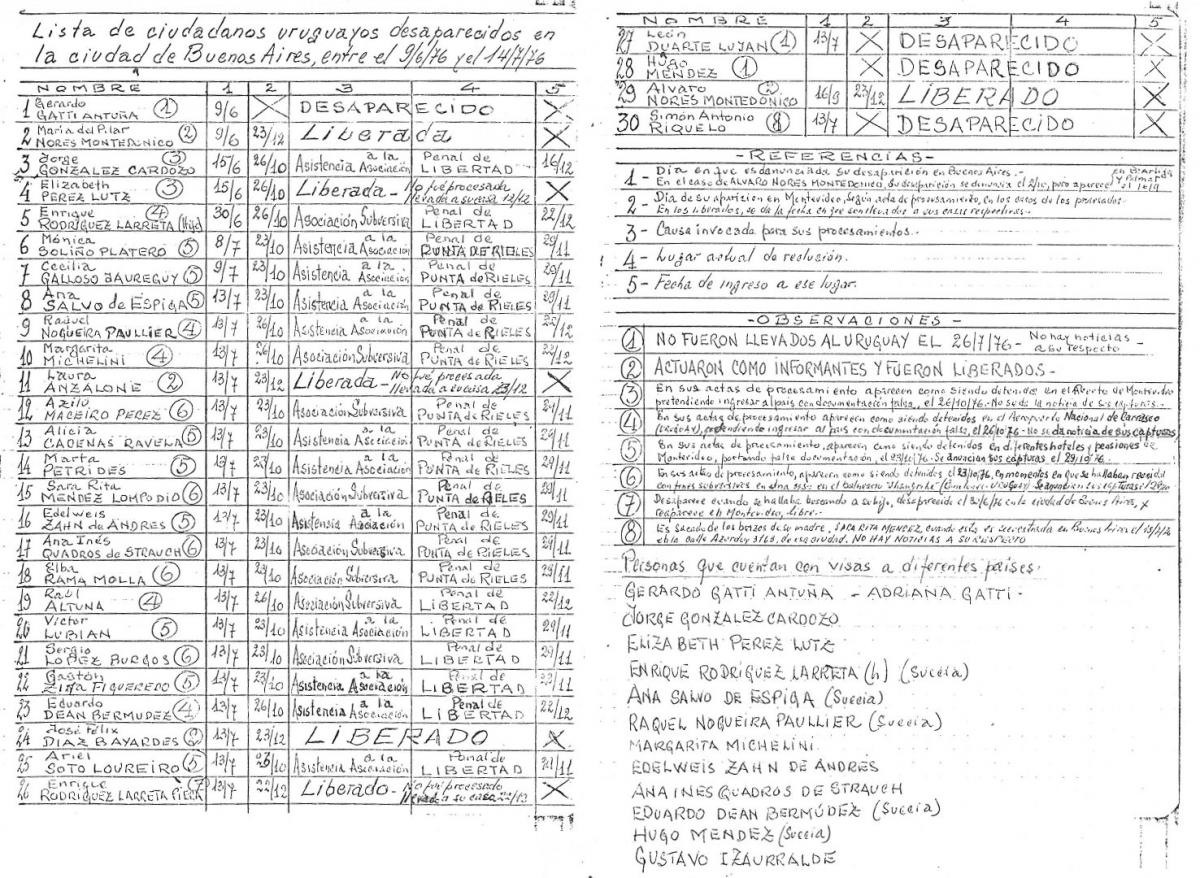 Lista de ciudadanos uruguayos desaparecidos en
la ciudad de Buenos Aires, entre el 9/6/76 y el 14/7/76
NOMBRE 1 2 3 4 5
1 Gerardo GATTI ANTUÑA (1) 9/6 X DESAPARECIDO X
2 María del Pilar NORES MONTEDONICO (2) 9/6 23/12 Liberada X
3 Jorge GONZALEZ CARDOZO (3) 15/6 26/10 Asistencia a la Asociación Penal de LIBERTAD 16/12
4 Elizabeth PEREZ LUTZ (3) 15/6 26/10 Liberada - No fué procesada llevada a su casa 12/12 X
5 Enrique RODRÍGUEZ LARRETA (Hijo) (4) 30/6 26/10 Asociación Subversiva Penal de LIBERTAD 22/12
6 Mónica SOLIÑO PLATERO (5) 8/7 23/10 Asistencia a la Asociación Penal de PUNTA DE RIELES 29/11
7 Cecilia GALLOSO JAUREGUY (5) 9/7 23/10 Asistencia a la Asociación Penal de PUNTA de RIELES 29/11
8 Ana SALVO de ESPIGA (5) 13/7 23/10 Asistencia a la Asociación Penal de PUNTA DE RIELES 29/11
9 Raquel NOGUEIRA PAULLIER (4) 13/7 26/10 Asistencia a la Asociación Penal de PUNTA DE RIELES 22/12
10 Margarita MICHELINI (4) 13/7 26/10 Asociación Subversiva Penal de PUNTA DE RIELES 22/12
11 Laura ANZALONE (2) 13/7 23/12 Liberada - No fué procesada llevada a su casa 23/12 X
12 MACEIRO PEREZ (6) 13/7 23/10 Asociación Subversiva Penal de PUNTA de RIELES 29/11
13 Alicia CADENAS RAVELA (5) 13/7 23/10 Asistencia a la Asociación Penal de PUNTA DE RIELES 29/11
14 Marta PETRIDES (5) 13/7 23/10 Asistencia a la Asociación Penal de PUNTA DE RIELES 29/11
15 Sara Rita MENDEZ LOMPODIO (6) 13/7 23/10 Asociación Subversiva Penal de PUNTA DE RIELES 29/11
16 Edelweis ZAHN de ANDRES (5) 13/7 23/10 Asistensia a la Asociación Penal de PUNTA DE RIELES 29/11
17 Ana Inés QUADROS de STRAUCH (6) 13/7 23/10 Asociación Subversiva Penal de PUNTA DE RIELES 29/11
18 Elba RAMA MOLLA (6) 13/7 23/10 Asociación Subversiva Penal de PUNTA DE RIELES 29/11
19 Raúl ALTUNA (4) 13/7 26/10 Asociación Subversiva Penal de LIBERTAD 22/12
20 Víctor LUBIAN (5) 13/7 23/10 Asistencia a la Asociación Penal de LIBERTAD 29/11
21 Sergio LOPEZ BURGOS (6) 13/7 23/10 Asociación Subversiva Penal de LIBERTAD 29/11
22 Gastón ZINA FIGUEREDO (5) 13/7 23/10 Asistencia a la Asociación Penal de LIBERTAD
23 Eduardo DEAN BERMUDEZ (4) 13/7 26/10 Asistencia a la Asociación Penal de LIBERTAD 22/12
24 José Félix DIAZ BAYARDES (2) 13/7 23/12 LIBERADO X
25 Ariel SOTO LOUREIRO (5) 13/7 23/10 Asistencia a la Asociación Penal de LIBERTAD
26 Enrique RODRÍGUEZ LARRETA PIERA (7) 13/7 22/12 Liberado - No fué procesado llevado a su casa 22/12 X
NOMBRE 1 2 3 4 5
27 León DUARTE LUJAN (1) 13/7 X DESAPARECIDO X
28 Hugo MENDEZ (1) X DESAPARECIDO X
29 Alvaro NORES MONTEDÓNICO 16/9 23/12 LIBERADO X
30 Simón Antonio RIQUELO (8) 13/7 X DESAPARECIDO X
- REFERENCIAS -
1 - Día en que es denunciada su desaparición en Buenos Aires.-
En el caso de ALVARO NORES MONTEDONICO, su desaparición se denuncia el 2/10, pero aparece
2 - Día de su aparición en Montevideo, según acta de procesamiento, en los casos de los procesados.
En los liberados, se da la fecha en que son llevados a sus casas respectivas.-
3 - Causa invocada para sus procesamientos.-
4 - Lugar actual de reclusión.
5 - Fecha de ingreso a ese lugar.
- OBSERVACIONES -
(1) NO FUERON LLEVADOS AL URUGUAY EL 26/7/76 - No hay noticias a su respecto
(2) ACTUARON COMO INFORMANTES Y FUERON LIBERADOS -
(3) En sus actas de procesamiento aparecen como siendo detenidos en el Puerto de Montevideo
pretendiendo ingresar al país con documentación falsa, el 26/10/76 - No se da la noticia de sus capturas.-
(4) En sus actas de procesamiento aparecen como siendo detenidos en el Aeropuerto Nacional de Carrasco
(URUGUAY), pretendiendo ingresar al país con documentación falsa, el 26/10/76 - No se da noticia de sus capturas
(5) En sus actas de procesamiento, aparecen como siendo detenidos en diferentes hoteles y pensiones de
Montevideo, portando falsa documentación el 23/10/76. Se anuncian sus capturas el 29/10/76
(6) En sus actas de procesamiento, aparecen como siendo detenidos el 23/10/76, en momentos en que se hallaban reunidos
con fines subversivos en una en el Balneario "Shangrilá"
(7) Desaparece cuando se hallaba buscando a su hijo, desaparecido el en la ciudad de Buenos Aires, x
reaparece en Montevideo, libre.-
(8) Es sacado de los brazos de su madre, SARA RITA MENDEZ, cuando esta es secuestrada en Buenos Aires el 13/7/76
en la calle Juana Azurduy 3163, de esa ciudad. NO HAY NOTICIAS A SU RESPECTO
Personas que cuentan con visas a diferentes países.
GERARDO GATTI ANTUÑA - ADRIANA GATTI -
JORGE GONZALEZ CARDOZO
ELIZABETH PEREZ LUTZ
ENRIQUE RODRÍGUEZ LARRETA (h) (Suecia)
ANA SALVO DE ESPIGA (Suecia)
RAQUEL NOGUEIRA PAULLIER (Suecia)
MARGARITA MICHELINI
EDELWEIS ZAHN DE ANDRÉS
ANA INES QUADROS DE STRAUCH
EDUARDO DEAN BERMÚDEZ (Suecia)
HUGO MENDEZ (Suecia)
GUSTAVO IZAURRALDE